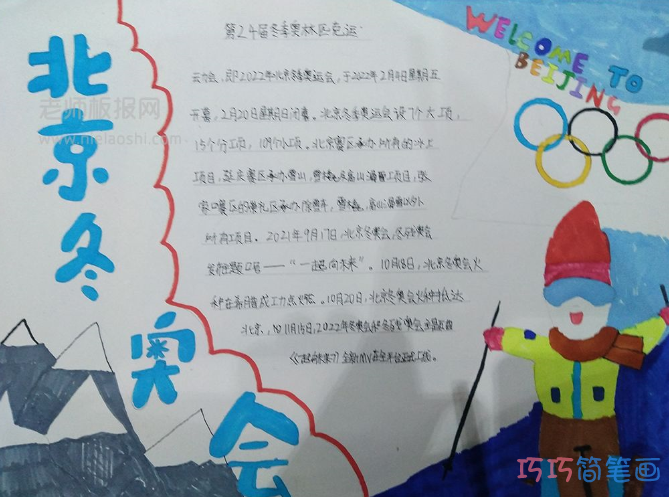 北京冬奥会
WELCOME TO
BEIJING
第24届冬季奥林匹克运
动会,即2022年北京冬季奥运会,于2022年2月4日星期五
开幕,2月20日星期日闭幕。北京冬季奥运会设7个大项,
15个分项,109个小项。北京赛区承办所有的冰上
项目,延庆赛区承办雪山,雪橇及高山滑雪项目,张
家口赛区的崇礼区承办除雪车,雪橇,高山滑雪以外
所有项目。2021年9月17日,北京冬奥会,冬残奥会
发布主题口号——“一起向未来”。10月18日,北京冬奥会火
种在希腊成功点燃。10月20日,北京冬奥会火种抵达
北京,11月15日,2022年冬奥会和冬残奥会
全新MV在全平台正式上线。
老师板报网
www.nielaoshi.com
巧巧简笔画